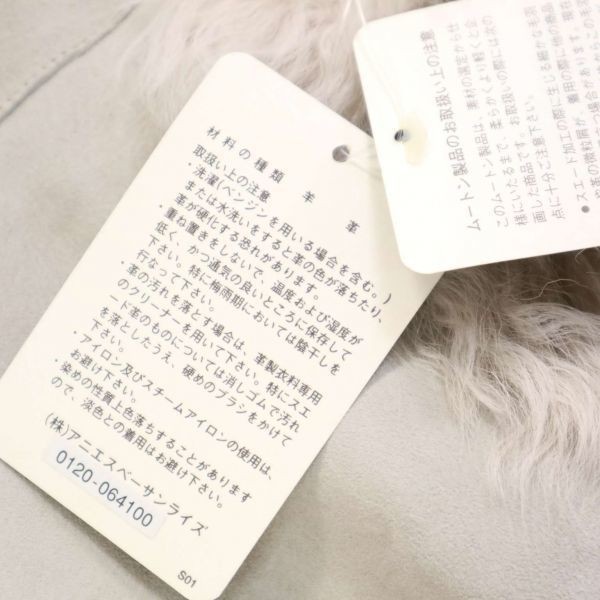 材料の種類 羊 革
取扱い上の注意
・洗濯(ベンジンを用いる場合を含む。)
または水洗いをすると革の色が落ちたり、
革が硬化する恐れがあります。
・重ね置きをしないで、温度および湿度が
低く、かつ通気の良いところに保存して
下さい。特に梅雨期においては陰干しを
行なって下さい。
・革の汚れを落とす場合は、革製衣料専用
のクリーナーを用いて下さい。特にスエ
ード革のものについては消しゴムで汚れ
を落としたうえ、硬めのブラシをかけて
下さい。
・アイロン及びスチームアイロンの使用は、
お避け下さい。
・染めの性質上色落ちすることがあります
ので、淡色との着用はお避け下さい。
(株)アニエスベーサンライズ
0120-064100
S01
ムートン製品のお取扱い上の注意
このムートン製品は、素材の選定から仕
様にいたるまで、柔らかくより軽くと企
画した商品です。お取扱いの際には次の
点に十分ご注意下さい。
●スエード加工の際に生じる細かな毛羽